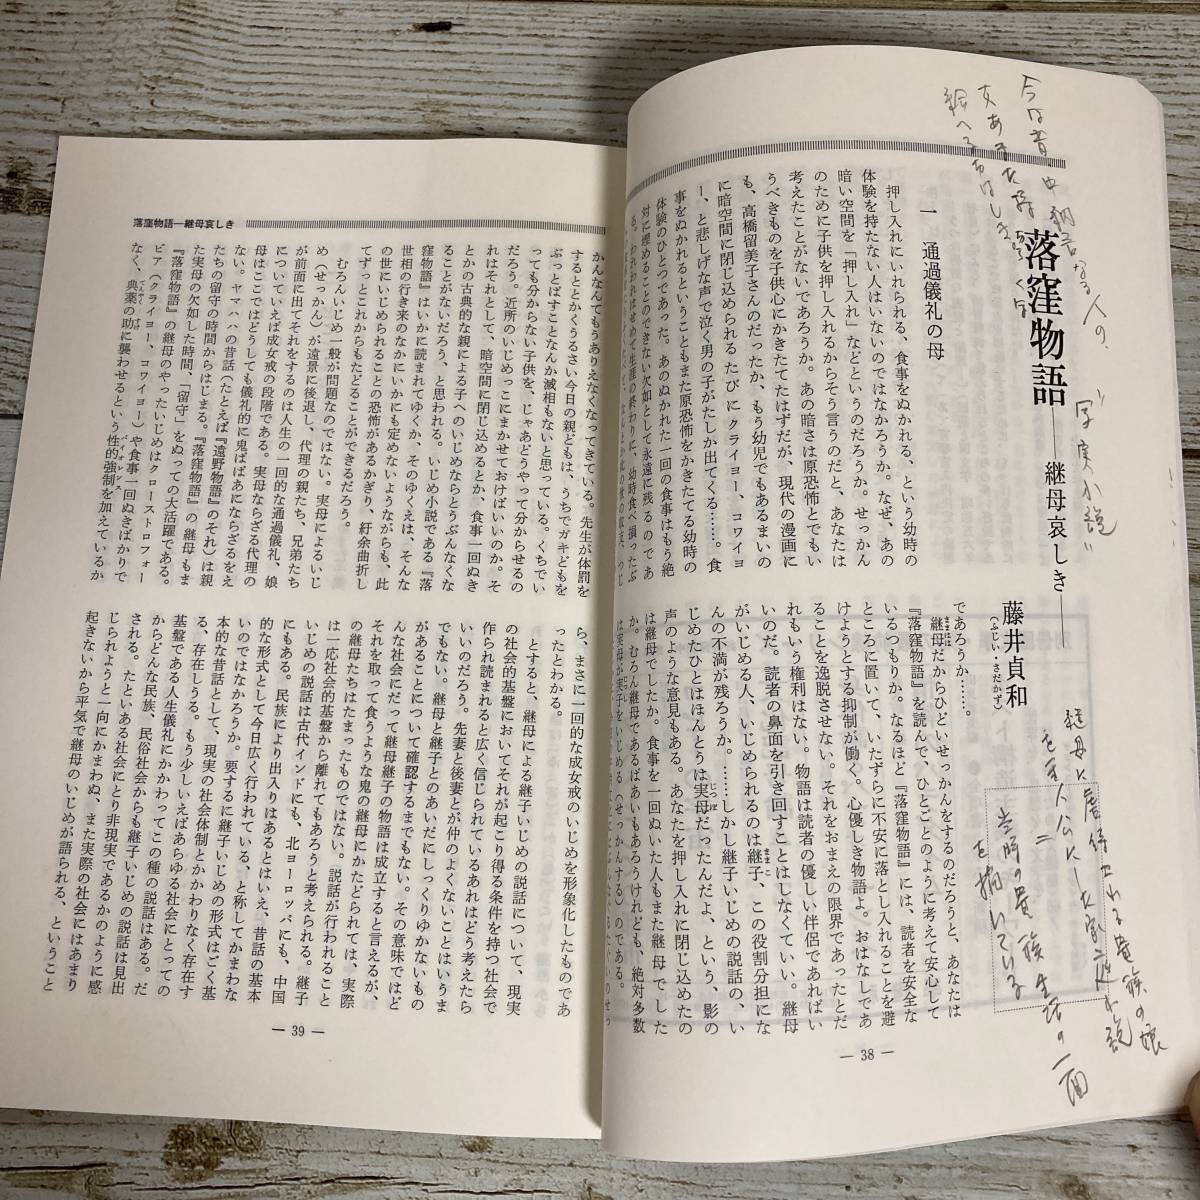 落窪物語――継母哀しき――
藤井貞和
(ふじい・さだかず)
一 通過儀礼の母
押し入れにいれられる、食事をぬかれる、という幼時の
体験を持たない人はいないのではなかろうか。なぜ、あの
暗い空間を「押し入れ」などというのだろうか。せっかん
のために子供を押し入れるからそう言うのだと、あなたは
考えたことがないであろうか。あの暗さは原恐怖とでもい
うべきものを子供心にかきたてたはずだが、現代の漫画に
も、高橋留美子さんのだったか、もう幼児でもあるまいの
に暗空間に閉じ込められるたびにクライヨー、コワイヨ
ー、と悲しげな声で泣く男の子がたしか出てくる……。食
事をぬかれるということもまた原恐怖をかきたてる幼時の
体験のひとつであった。あのぬかれた一回の食事はもう絶
対に埋めることのできない欠如として永遠に残るのであ
る。われわれはせべて生涯の終わりに、幼時食べ損ったぶ
であろうか……。
継母だからひどいせっかんをするのだろうと、あなたは
『落窪物語』を読んで、ひとごとのように考えて安心して
いるつもりか。なるほど『落窪物語』には、読者を安全な
ところに置いて、いたずらに不安に落とし入れることを避
けようとする抑制が働く。心優しき物語よ。おはなしであ
ることを逸脱させない。それをおまえの限界であったとだ
れもいう権利はない。物語は読者の優しい伴侶であればい
いのだ。読者の鼻面を引き回すことはしなくていい。継母
がいじめる人、いじめられるのは継子、この役割分担にな
んの不満が残ろうか。……しかし継子いじめの説話の、い
じめたひとはほんとうは実母だったんだよ、という、影の
声のような意見もある。あなたを押し入れに閉じ込めたの
は継母でしたか。食事を一回ぬいた人もまた継母でした
か。むろん継母であるばあいもあろうけれども、絶対多数
は実母が実子をいじめる(せっかんする)のである。
― 38 ―
落窪物語―継母哀しき
かんなんてもうありえなくなってきている。先生が体罰を
するととかくうるさい今日の親どもは、うちでガキどもを
ぶっとばすことなんか滅相もないと思っている。くちでい
っても分からない子供を、じゃあどうやって分からせるの
だろう。近所のいじめっこにまかせておけばいいのか。そ
れはそれとして、暗空間に閉じ込めるとか、食事一回ぬき
とかの古典的な親による子へのいじめならとうぶんなくな
ることがないだろう、と思われる。いじめ小説である『落
窪物語』はいかに読まれてゆくか、そのゆくえは、そんな
世相の行き来のなかにいかにも定めないようながらも、此
の世にいじめられることの恐怖があるかぎり、紆余曲折し
てずっとこれからもたどることができるだろう。
むろんいじめ一般が問題なのではない。実母によるいじ
め(せっかん)が遠景に後退し、代理の親たち、兄弟たち
が前面に出てそれをするのは人生の一回的な通過儀礼、娘
についていえば成女戒の段階である。実母ならざる代理の
母はここではどうしても儀礼的に鬼ばばあにならざるをえ
ない。ヤマハハの昔話(たとえば『遠野物語』のそれ)は親
たちの留守の時間からはじまる。『落窪物語』の継母もま
た実母の欠如した時間、「留守」をぬっての大活躍である。
『落窪物語』の継母のやったいじめはクローストロフォー
ビア(クライヨー、コワイヨー)や食事一回ぬきばかりで
なく、典薬の助に襲わせるという性的強制を加えているか
ら、まさに一回的な成女戒のいじめを形象化したものであ
ったとわかる。
とすると、継母による継子いじめの説話について、現実
の社会的基盤においてそれが起こり得る条件を持つ社会で
作られ読まれると広く信じられているあれはどう考えたら
いいのだろう。先妻と後妻とが仲のよくないことはいうま
でもない。継母と継子とのあいだにしっくりゆかないもの
があることについて確認するまでもない。その意味ではど
んな社会にだって継母継子の物語は成立すると言えるが、
それを取って食うような鬼の継母にかたどられては、実際
の継母たちはたまったものではない。説話が行われること
は一応社会的基盤から離れてもあろうと考えられる。継子
いじめの説話は古代インドにも、北ヨーロッパにも、中国
にもある。民族により出入りはあるとはいえ、昔話の基本
的な形式として今日広く行われている、と称してかまわな
いのではなかろうか。要するに継子いじめの形式はごく基
本的な昔話として、現実の社会体制とかかわりなく存在す
る、存在しうる。もう少しいえばあらゆる社会にとって
基盤である人生儀礼にかかわってこの種の説話はある。だ
からどんな民族、民俗社会からも継子いじめの説話は見出
される。たといある社会にとり非現実であるかのように感
じられようと一向にかまわぬ、また実際の社会にはあまり
起きないから平気で継母のいじめが語られる、ということ
― 39 ―
今は昔、中納言なる人の、
"写実小説"
継母に虐待される貴族の娘
を主人公にした家庭小説
当時の貴族生活の一面
を描いている